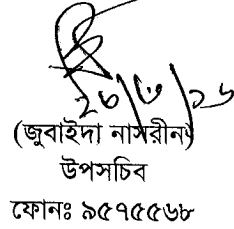 ২৮/৩/১৬
(জুবাইদা নাসরীন)
উপসচিব
ফোনঃ ৯৫৭৫৫৬৮